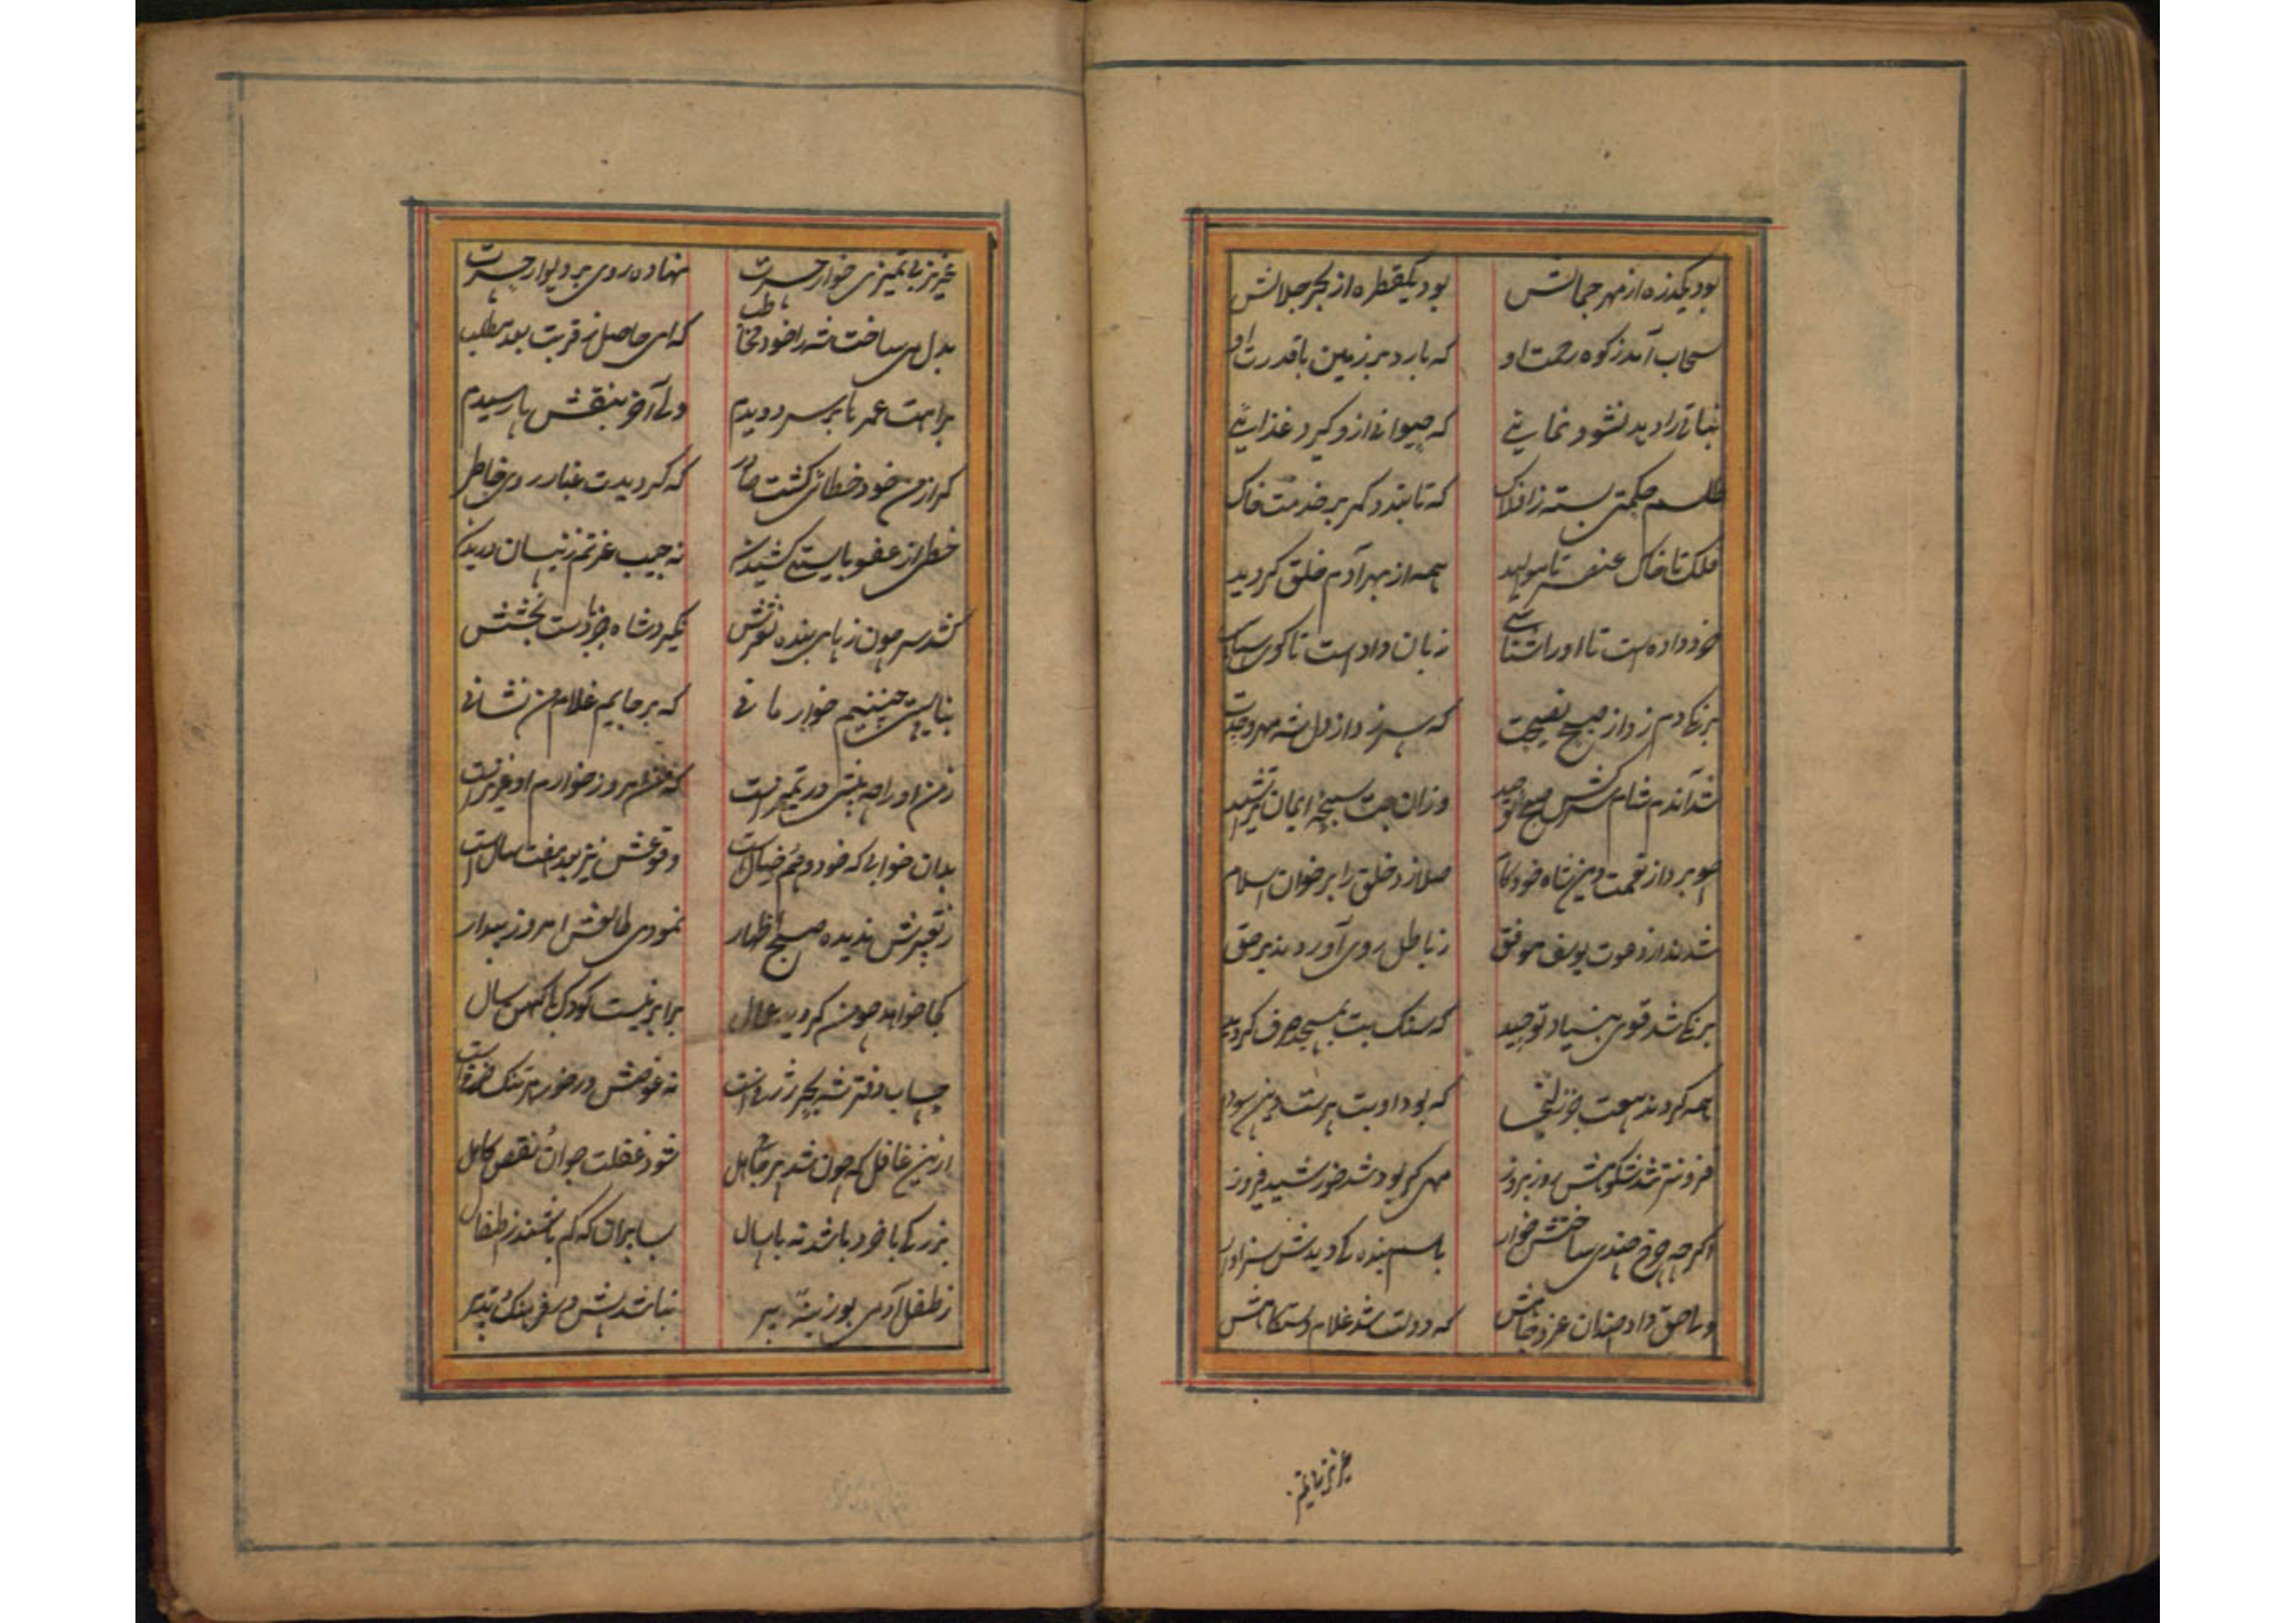 بود یکذره از مهر جمالش بود یکقطره از بحر جلالش
سحاب آمد ز کوه رحمت او که بارد بر زمین با قدرت او
نباتی را دهد نشو و نمایی که حیوانی ازو گیرد غذایی
طلسم حکمتی بسته ز افلاک که تابد دگر بر خدمت خاک
فلک تا خاک عنصر تا موالید همه از بهر آدم خلق گردید
خرد داده است تا او را شناسی زبان داد است تا گوی سپاسی
برنگی دم زد از صبح نصیحت که سر زد از دل شه مهر وحدت
شد آندم شام شرکش صبح توحید وزان بت سبحهٔ ایمان
چو برد از نعمت دین شاه خود کام صلا زد خلق را بر خوان اسلام
شدند از دعوت یوسف موفق ز باطل روی آوردند بر حق
برنگی شد قوی بنیاد توحید که سنگ بت بمسجد صرف گردید
همه کردند بیعت جز زلیخا که بود او بت پرست دین
فزونتر شد شکوهش روز بروز مهی کو بود شد خورشید فیروز
اگر چه چرخ چندی ساختش خوار باسم بنده کی دیدش سزاوار
ولی حق داد چندان عز و جاهش که دولت شد غلام دستگاهش
عزیز بی تمیز
عزیز بی تمیزی خوار حسرت نهاده روی بر دیوار حسرت
بدل می ساخت شه را خود مخاطب که ای حاصل ز قربت بعد مطلب
براهت عمرها بر سر دویدم ولی آخر بنقش پا رسیدم
که از من خود خطائی گشت صادر که گردیدت غبار روی خاطر
خطی از عفو بایستی کشیدن نه جیب عزتم زینسان دریدن
کشد سر چون ز پای بنده لغزش نگیرد شاه جز دست بخشش
نبایست چنینم خوار مانی که بر جایم غلام من نشانی
ز من او را چه بینش در تمیز است که من امروز خوارم او عزیز است
بدان خوابی که خود وهم خیال است وقوعش نیز بعد هفت سال است
ز تعبیرش ندیده صبح اظهار نمودی طالعش امروز بیدار
کجا خواهد چون گردید عمال برابر نیست کودک با کهن سال
حساب دفتر شه بحر ژرف است نه غوصش در خور هر تنک ظرف است
ازین غافل که چون شد پیر جاهل شود غفلت جوان نقص کامل
بزرگی با خرد باشد نه با سال بسا پیران که کم باشند ز اطفال
ز طفل آدمی بوزینهٔ پیر نباشد بیش در فرهنگ تدبیر